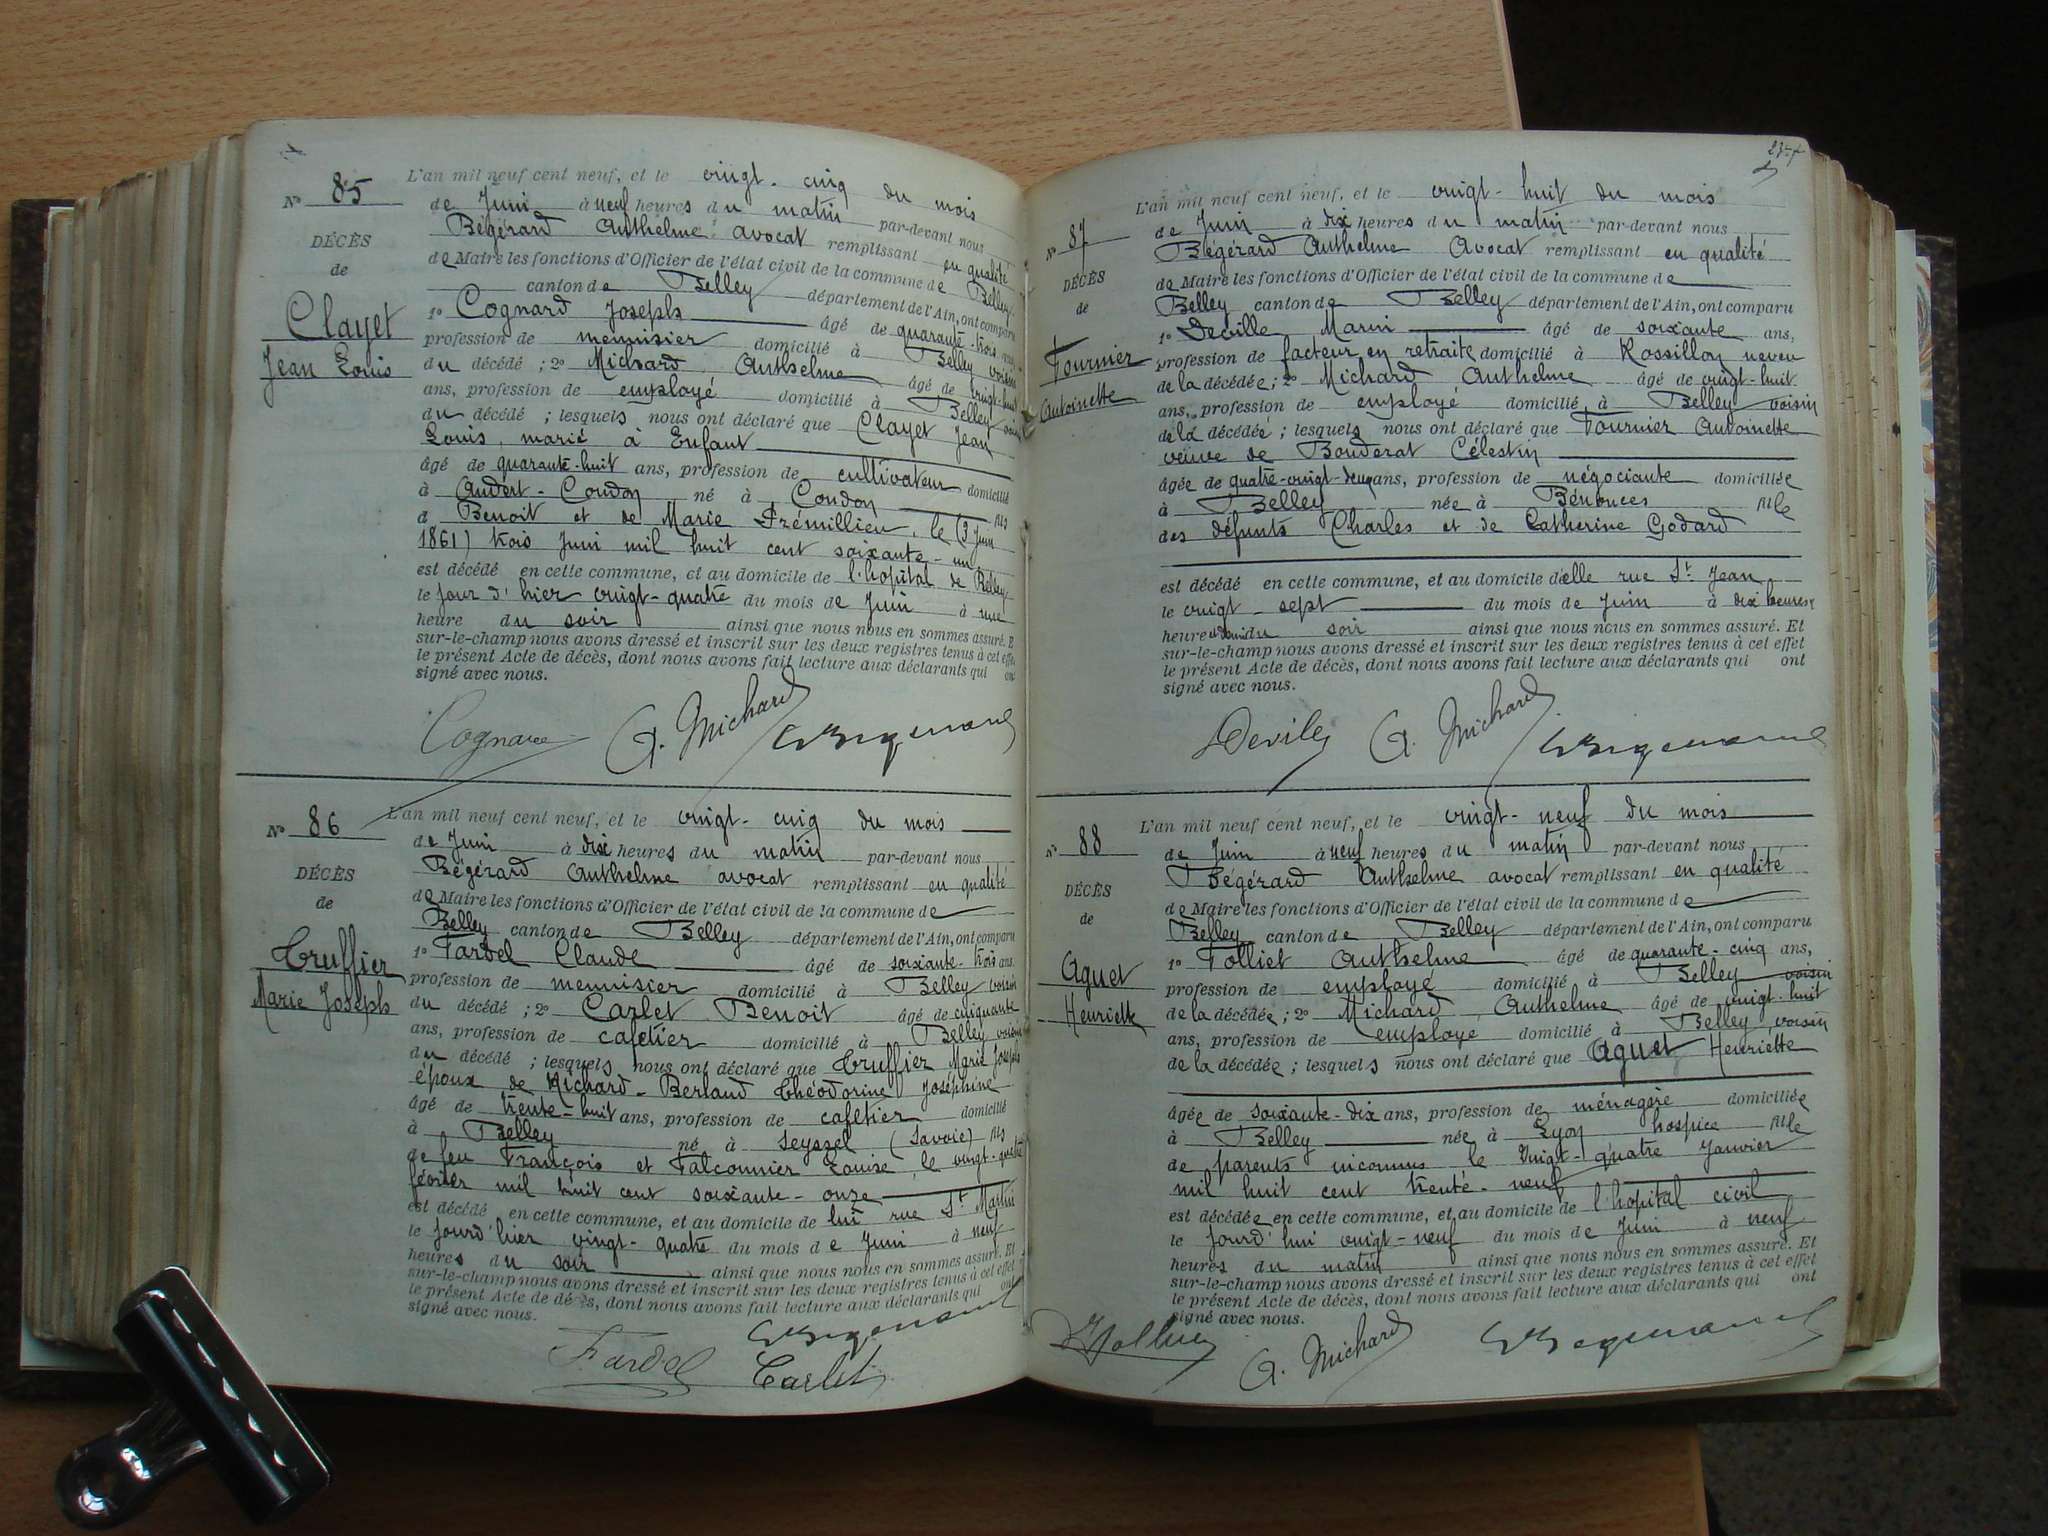 Nº 85
DÉCÈS
de
Clayet
Jean Louis
L'an mil neuf cent neuf, et le vingt-cinq du mois
de Juin à neuf heures du matin par-devant nous
Bégérard Anthelme avocat remplissant en qualité
de Maire les fonctions d'Officier de l'état civil de la commune de Belley
canton de Belley département de l'Ain, ont comparu
1º Cognard Joseph âgé de quarante-trois ans
profession de menuisier domicilié à Belley voisin
du décédé ; 2º Michard Anthelme âgé de vingt-huit
ans, profession de employé domicilié à Belley voisin
du décédé ; lesquels nous ont déclaré que Clayet Jean
Louis, marié à Enfant
âgé de quarante-huit ans, profession de cultivateur domicilié
à Andert-Condon né à Condon fils
d Benoit et de Marie Frémillieu, le (3 Juin
1861) trois Juin mil huit cent soixante-un
est décédé en cette commune, et au domicile de l'hopital de Belley
le jour d'hier vingt-quatre du mois de Juin à une
heure du soir ainsi que nous nous en sommes assuré. E
sur-le-champ nous avons dressé et inscrit sur les deux registres tenus à cet effet
le présent Acte de décès, dont nous avons fait lecture aux déclarants qui ont
signé avec nous.
Cognard A. Michard
Nº 86
DÉCÈS
de
Truffier
Marie Joseph
L'an mil neuf cent neuf, et le vingt-cinq du mois
de Juin à dix heures du matin par-devant nous
Bégérard Anthelme avocat remplissant en qualité
de Maire les fonctions d'Officier de l'état civil de la commune de
Belley canton de Belley département de l'Ain, ont comparu
1º Fardel Claude âgé de soixante-trois ans
profession de menuisier domicilié à Belley voisin
du décédé ; 2º Carlet Benoit âgé de cinquante
ans, profession de cafetier domicilié à Belley voisin
du décédé ; lesquels nous ont déclaré que Truffier Marie Joseph
époux de Richard-Berland Théodorine Joséphine
âgé de trente-huit ans, profession de cafetier domicilié
à Belley né à Seyssel (Savoie) fils
de feu François et Falconnier Louise, le vingt-quatre
février mil huit cent soixante-onze
est décédé en cette commune, et au domicile de lui rue St Martin
le jourd'hier vingt-quatre du mois de Juin à neuf
heures du soir ainsi que nous nous en sommes assuré. Et
sur-le-champ nous avons dressé et inscrit sur les deux registres tenus à cet effet
le présent Acte de décès, dont nous avons fait lecture aux déclarants qui ont
signé avec nous.
Fardel Carlet
Nº 87
DÉCÈS
de
Fournier
Antoinette
L'an mil neuf cent neuf, et le vingt-huit du mois
de Juin à dix heures du matin par-devant nous
Bégérard Anthelme Avocat remplissant en qualité
de Maire les fonctions d'Officier de l'état civil de la commune de
Belley canton de Belley département de l'Ain, ont comparu
1º Deville Marin âgé de soixante ans,
profession de facteur en retraite domicilié à Rossillon neveu
de la décédée ; 2º Michard Anthelme âgé de vingt-huit
ans, profession de employé domicilié à Belley voisin
de la décédée ; lesquels nous ont déclaré que Fournier Antoinette
veuve de Bouderat Célestin
âgée de quatre-vingt-deux ans, profession de négociante domiciliée
à Belley née à Bénonces fille
des défunts Charles et de Catherine Godard
est décédé en cette commune, et au domicile d'elle rue St Jean
le vingt-sept du mois de Juin à dix heures
heure et demi du soir ainsi que nous nous en sommes assuré. Et
sur-le-champ nous avons dressé et inscrit sur les deux registres tenus à cet effet
le présent Acte de décès, dont nous avons fait lecture aux déclarants qui ont
signé avec nous.
Deville A. Michard
Nº 88
DÉCÈS
de
Aguet
Henriette
L'an mil neuf cent neuf, et le vingt-neuf du mois
de Juin à neuf heures du matin par-devant nous
Bégérard Anthelme avocat remplissant en qualité
de Maire les fonctions d'Officier de l'état civil de la commune de
Belley canton de Belley département de l'Ain, ont comparu
1º Folliet Anthelme âgé de quarante-cinq ans,
profession de employé domicilié à Belley voisin
de la décédée ; 2º Michard Anthelme âgé de vingt-huit
ans, profession de employé domicilié à Belley voisin
de la décédée ; lesquels nous ont déclaré que Aguet Henriette
âgée de soixante-dix ans, profession de ménagère domiciliée
à Belley née à Lyon hospice fille
de parents inconnus le vingt-quatre Janvier
mil huit cent trente-neuf
est décédée en cette commune, et au domicile de l'hopital civil
le jourd'hui vingt-neuf du mois de Juin à neuf
heures du matin ainsi que nous nous en sommes assuré. Et
sur-le-champ nous avons dressé et inscrit sur les deux registres tenus à cet effet
le présent Acte de décès, dont nous avons fait lecture aux déclarants qui ont
signé avec nous.
A. Michard